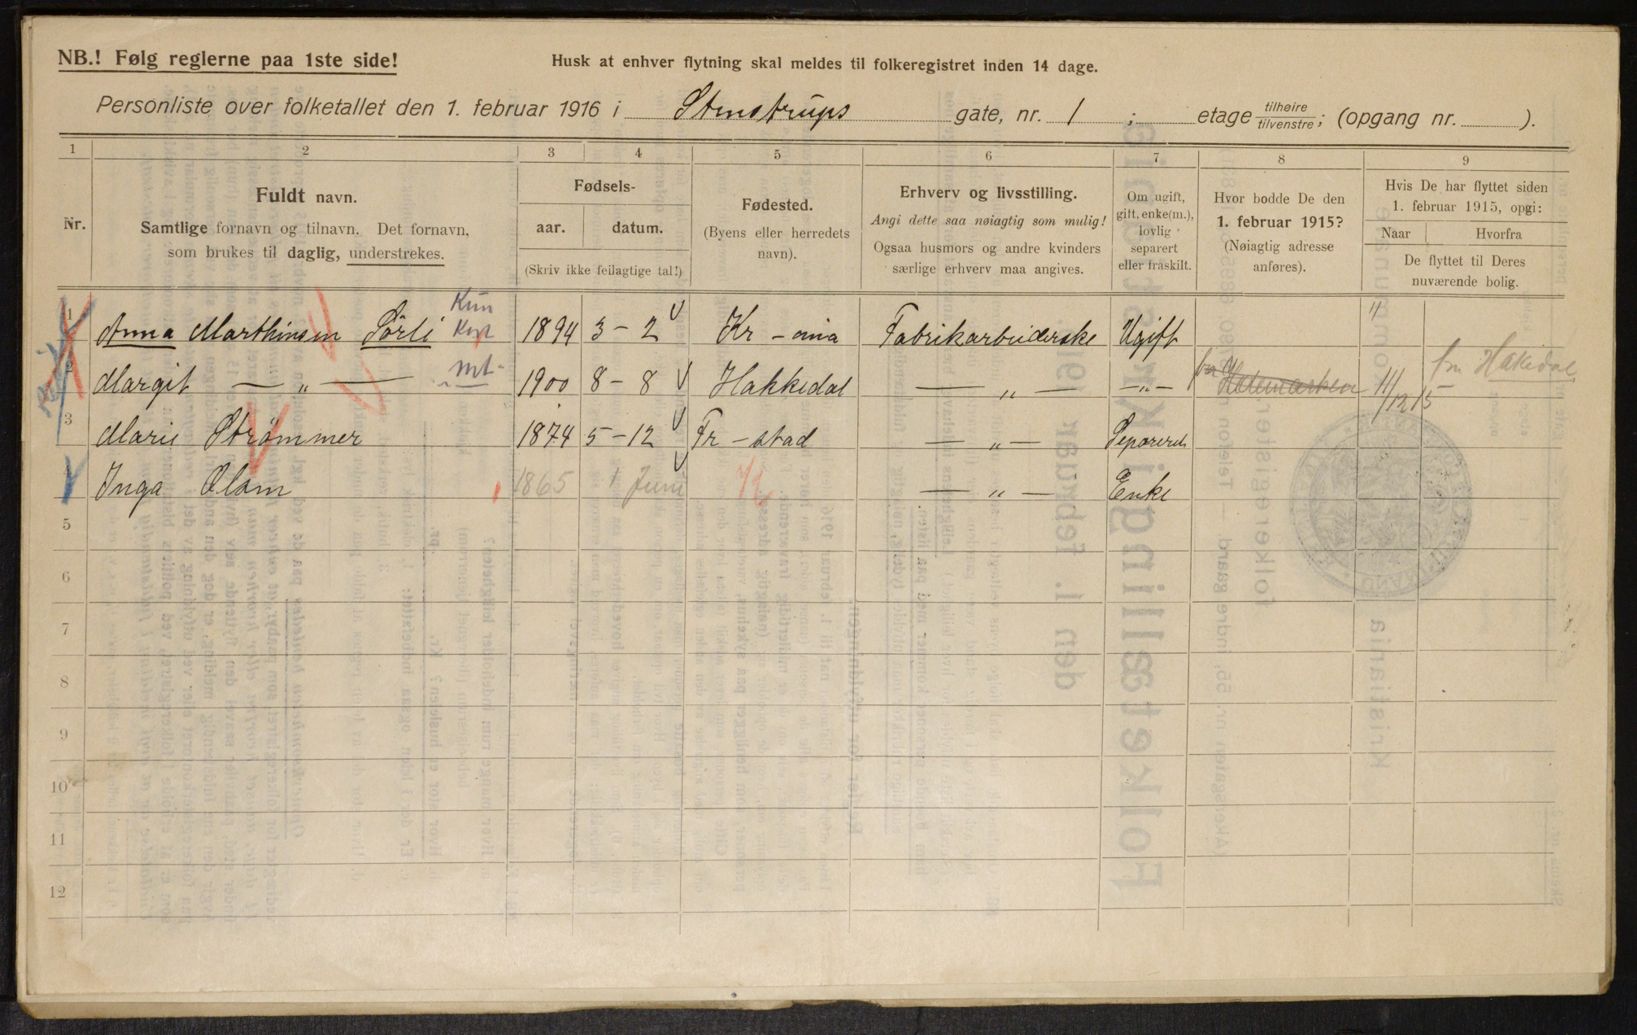 NB.! Følg reglerne paa 1ste side!
Husk at enhver flytning skal meldes til folkeregistret inden 14 dage.
Personliste over folketallet den 1. februar 1916 i Stenstrups gate, nr. 1 ; etage tilhøire tilvenstre; (opgang nr. ).
1 2 3 4 5 6 7 8 9
Nr.
Fuldt navn.
Samtlige fornavn og tilnavn. Det fornavn,
som brukes til daglig, understrekes.
Fødsels-
aar. datum.
(Skriv ikke feilagtige tal!)
Fødested.
(Byens eller herredets
navn).
Erhverv og livsstilling.
Angi dette saa nøiagtig som mulig!
Ogsaa husmors og andre kvinders
særlige erhverv maa angives.
Om ugift,
gift, enke(m.),
lovlig
separert
eller fraskilt.
Hvor bodde De den
1. februar 1915?
(Nøiagtig adresse
anføres).
Hvis De har flyttet siden
1. februar 1915, opgi:
Naar Hvorfra
De flyttet til Deres
nuværende bolig.
1 Anna Marthinsen Sörli 1894 3-2 Kr-ania Fabrikarbeiderske Ugift
2 Margit — „ — 1900 8-8 Hakkedal — „ — — „ — 11/12 15 fra Hakedal
3 Marie Strømmer 1874 5-12 Fr-stad — „ — Separeret
Inga Olsen 1865 1 Juni — „ — Enke
5
6
7
8
9
10
11
12